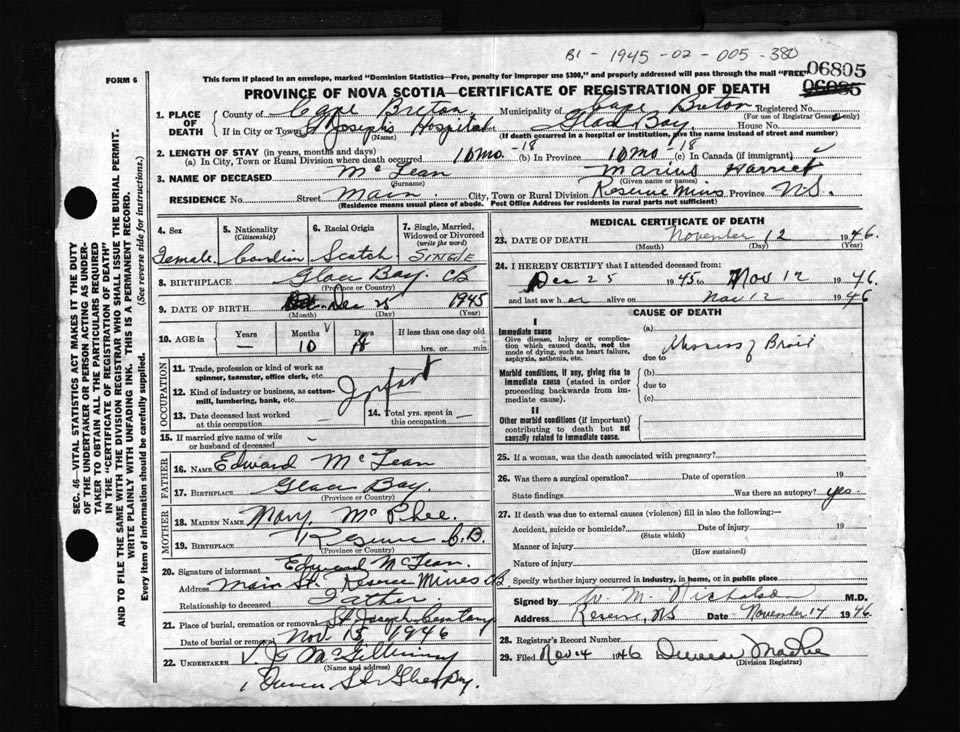 B1 - 1945 - 02 - 005 - 380
FORM 6
This form if placed in an envelope, marked "Dominion Statistics—Free, penalty for improper use $300," and properly addressed will pass through the mail "FREE"
06805
06085
PROVINCE OF NOVA SCOTIA—CERTIFICATE OF REGISTRATION OF DEATH
1. PLACE OF DEATH
County of Cape Breton Municipality of Cape Breton Registered No.
(For use of Registrar General only)
If in City or Town St Joseph's Hospital Street Glace Bay House No.
(Name) (If death occurred in a hospital or institution, give the name instead of street and number)
2. LENGTH OF STAY (in years, months and days)
(a) In City, Town or Rural Division where death occurred 10 mo. - 18 (b) In Province 10 mo - 18 (c) In Canada (if immigrant)
3. NAME OF DECEASED McLean Harriet
(Surname) (Given name or names)
RESIDENCE No. Street Main City, Town or Rural Division Reserve Mines Province N.S.
(Residence means usual place of abode. Post Office Address for residents in rural parts not sufficient)
4. Sex
5. Nationality
(Citizenship)
6. Racial Origin
7. Single, Married, Widowed or Divorced
(write the word)
Female Scotch SINGLE
8. BIRTHPLACE Glace Bay. CB
(Province or Country)
9. DATE OF BIRTH Dec 25 1945
(Month) (Day) (Year)
10. AGE in
Years Months Days If less than one day old
— 10 18 hrs. or min.
OCCUPATION
11. Trade, profession or kind of work as spinner, teamster, office clerk, etc.
12. Kind of industry or business, as cotton-mill, lumbering, bank, etc.
Infant
13. Date deceased last worked at this occupation
14. Total yrs. spent in this occupation —
15. If married give name of wife or husband of deceased
FATHER
16. NAME Edward McLean
17. BIRTHPLACE Glace Bay.
(Province or Country)
MOTHER
18. MAIDEN NAME Mary McPhee.
19. BIRTHPLACE Reserve C.B.
(Province or Country)
20. Signature of informant Edward McLean.
Address Main St. Reserve Mines CB
Relationship to deceased Father.
21. Place of burial, cremation or removal St Joseph Cemetary
Date of burial or removal Nov. 15 1946
22. UNDERTAKER
(Name and address)
MEDICAL CERTIFICATE OF DEATH
23. DATE OF DEATH November 12 1946.
(Month) (Day) (Year)
24. I HEREBY CERTIFY that I attended deceased from:
Dec 25 1945 to Nov 12 1946.
and last saw her alive on Nov 12 1946
CAUSE OF DEATH
I
Immediate cause
Give disease, injury or complication which caused death, not the mode of dying, such as heart failure, asphyxia, asthenia, etc.
(a)
due to
Morbid conditions, if any, giving rise to immediate cause (stated in order proceeding backwards from immediate cause).
(b)
due to
(c)
II
Other morbid conditions (if important) contributing to death but not causally related to immediate cause.
25. If a woman, was the death associated with pregnancy?
26. Was there a surgical operation? Date of operation 19
State findings Was there an autopsy? yes.
27. If death was due to external causes (violence) fill in also the following:—
Accident, suicide or homicide? Date of injury 19
(State which)
Manner of injury
(How sustained)
Nature of injury
Specify whether injury occurred in industry, in home, or in public place
Signed by W. M. Nicholson M.D.
Address Reserve, NS Date November 14 1946
28. Registrar's Record Number
29. Filed Nov 14 1946
(Division Registrar)
SEC. 46—VITAL STATISTICS ACT MAKES IT THE DUTY
OF THE UNDERTAKER OR PERSON ACTING AS UNDER-
TAKER TO OBTAIN ALL THE PARTICULARS REQUIRED
IN THE "CERTIFICATE OF REGISTRATION OF DEATH"
AND TO FILE THE SAME WITH THE DIVISION REGISTRAR WHO SHALL ISSUE THE BURIAL PERMIT.
WRITE PLAINLY WITH UNFADING INK. THIS IS A PERMANENT RECORD.
Every item of information should be carefully supplied. (See reverse side for instructions.)